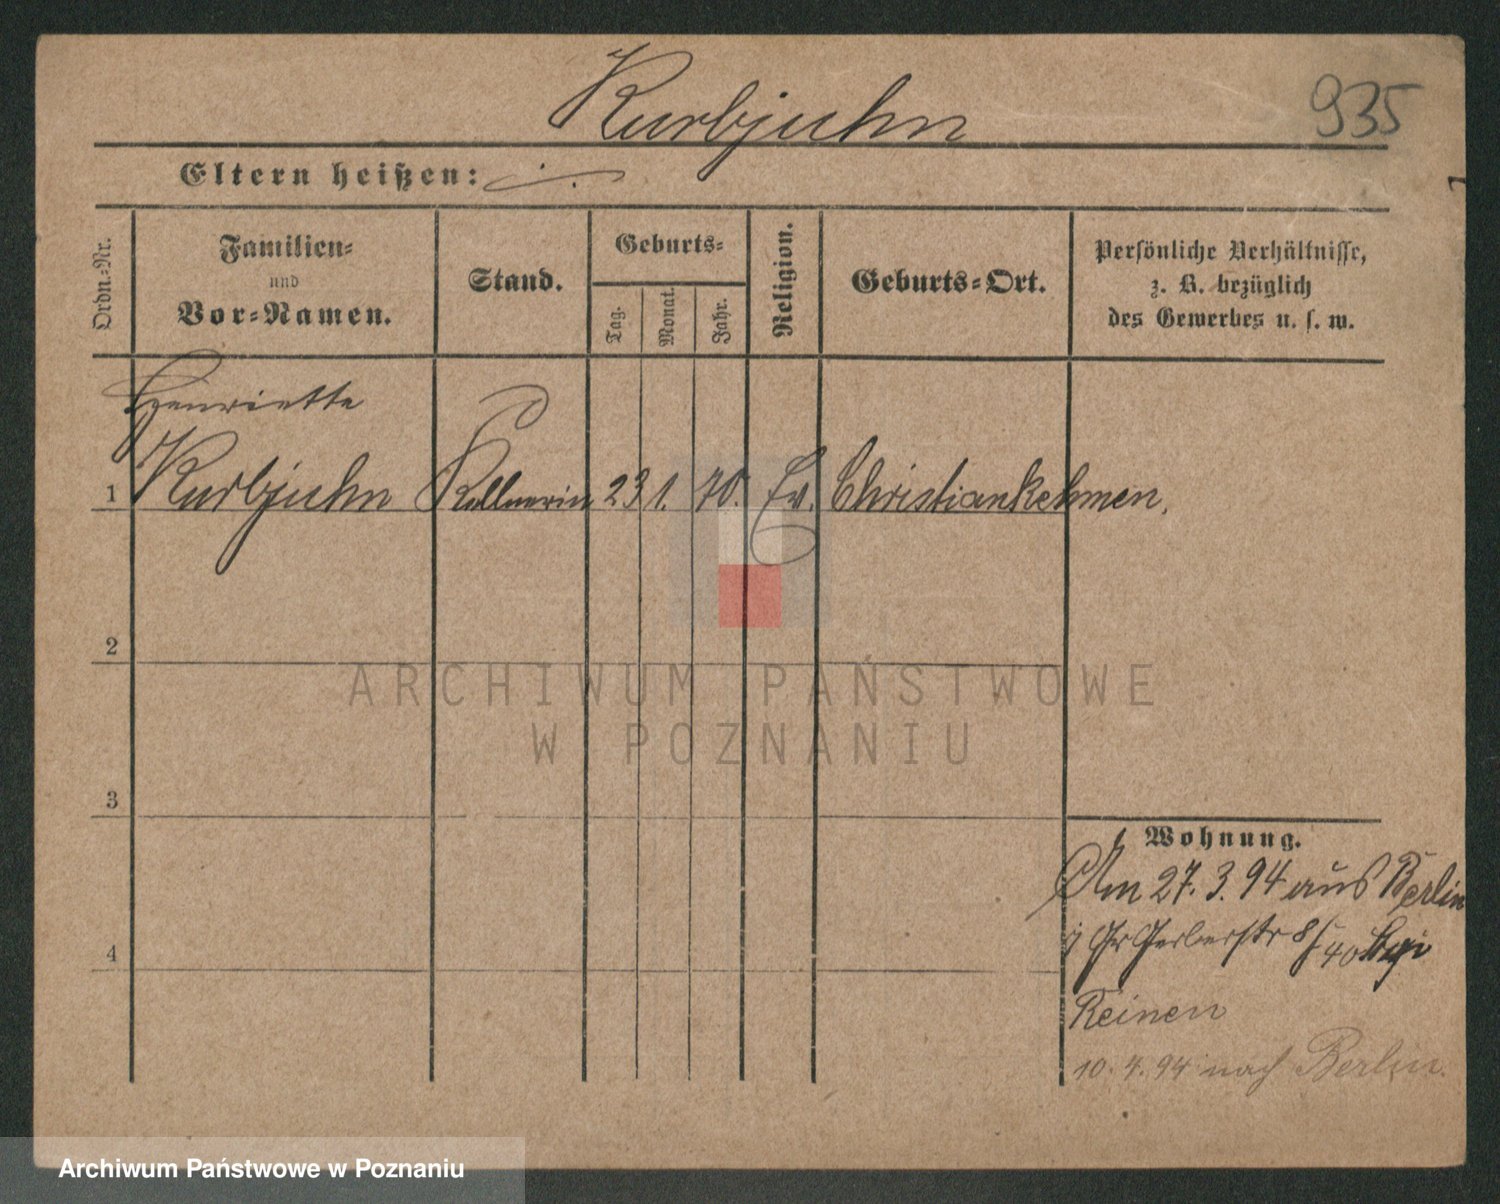 Kurbjuhn
935
Eltern heißen:
Ordn.-Nr.
Familien-
und
Vor-Namen.
Stand.
Geburts-
Tag.
Monat.
Jahr.
Religion.
Geburts-Ort.
Persönliche Verhältnisse,
z. B. bezüglich
des Gewerbes u. s. w.
Henriette
1 Kurbjuhn Kellnerin 23 1. 70. Ev. Christiankehmen.
2
ARCHIWUM PAŃSTWOWE
W POZNANIU
3
Wohnung.
Am 27. 3. 94 aus Berlin
Gr Gerberstr 8/40 bei
4
Reinen
10. 4. 94 nach Berlin.
Archiwum Państwowe w Poznaniu